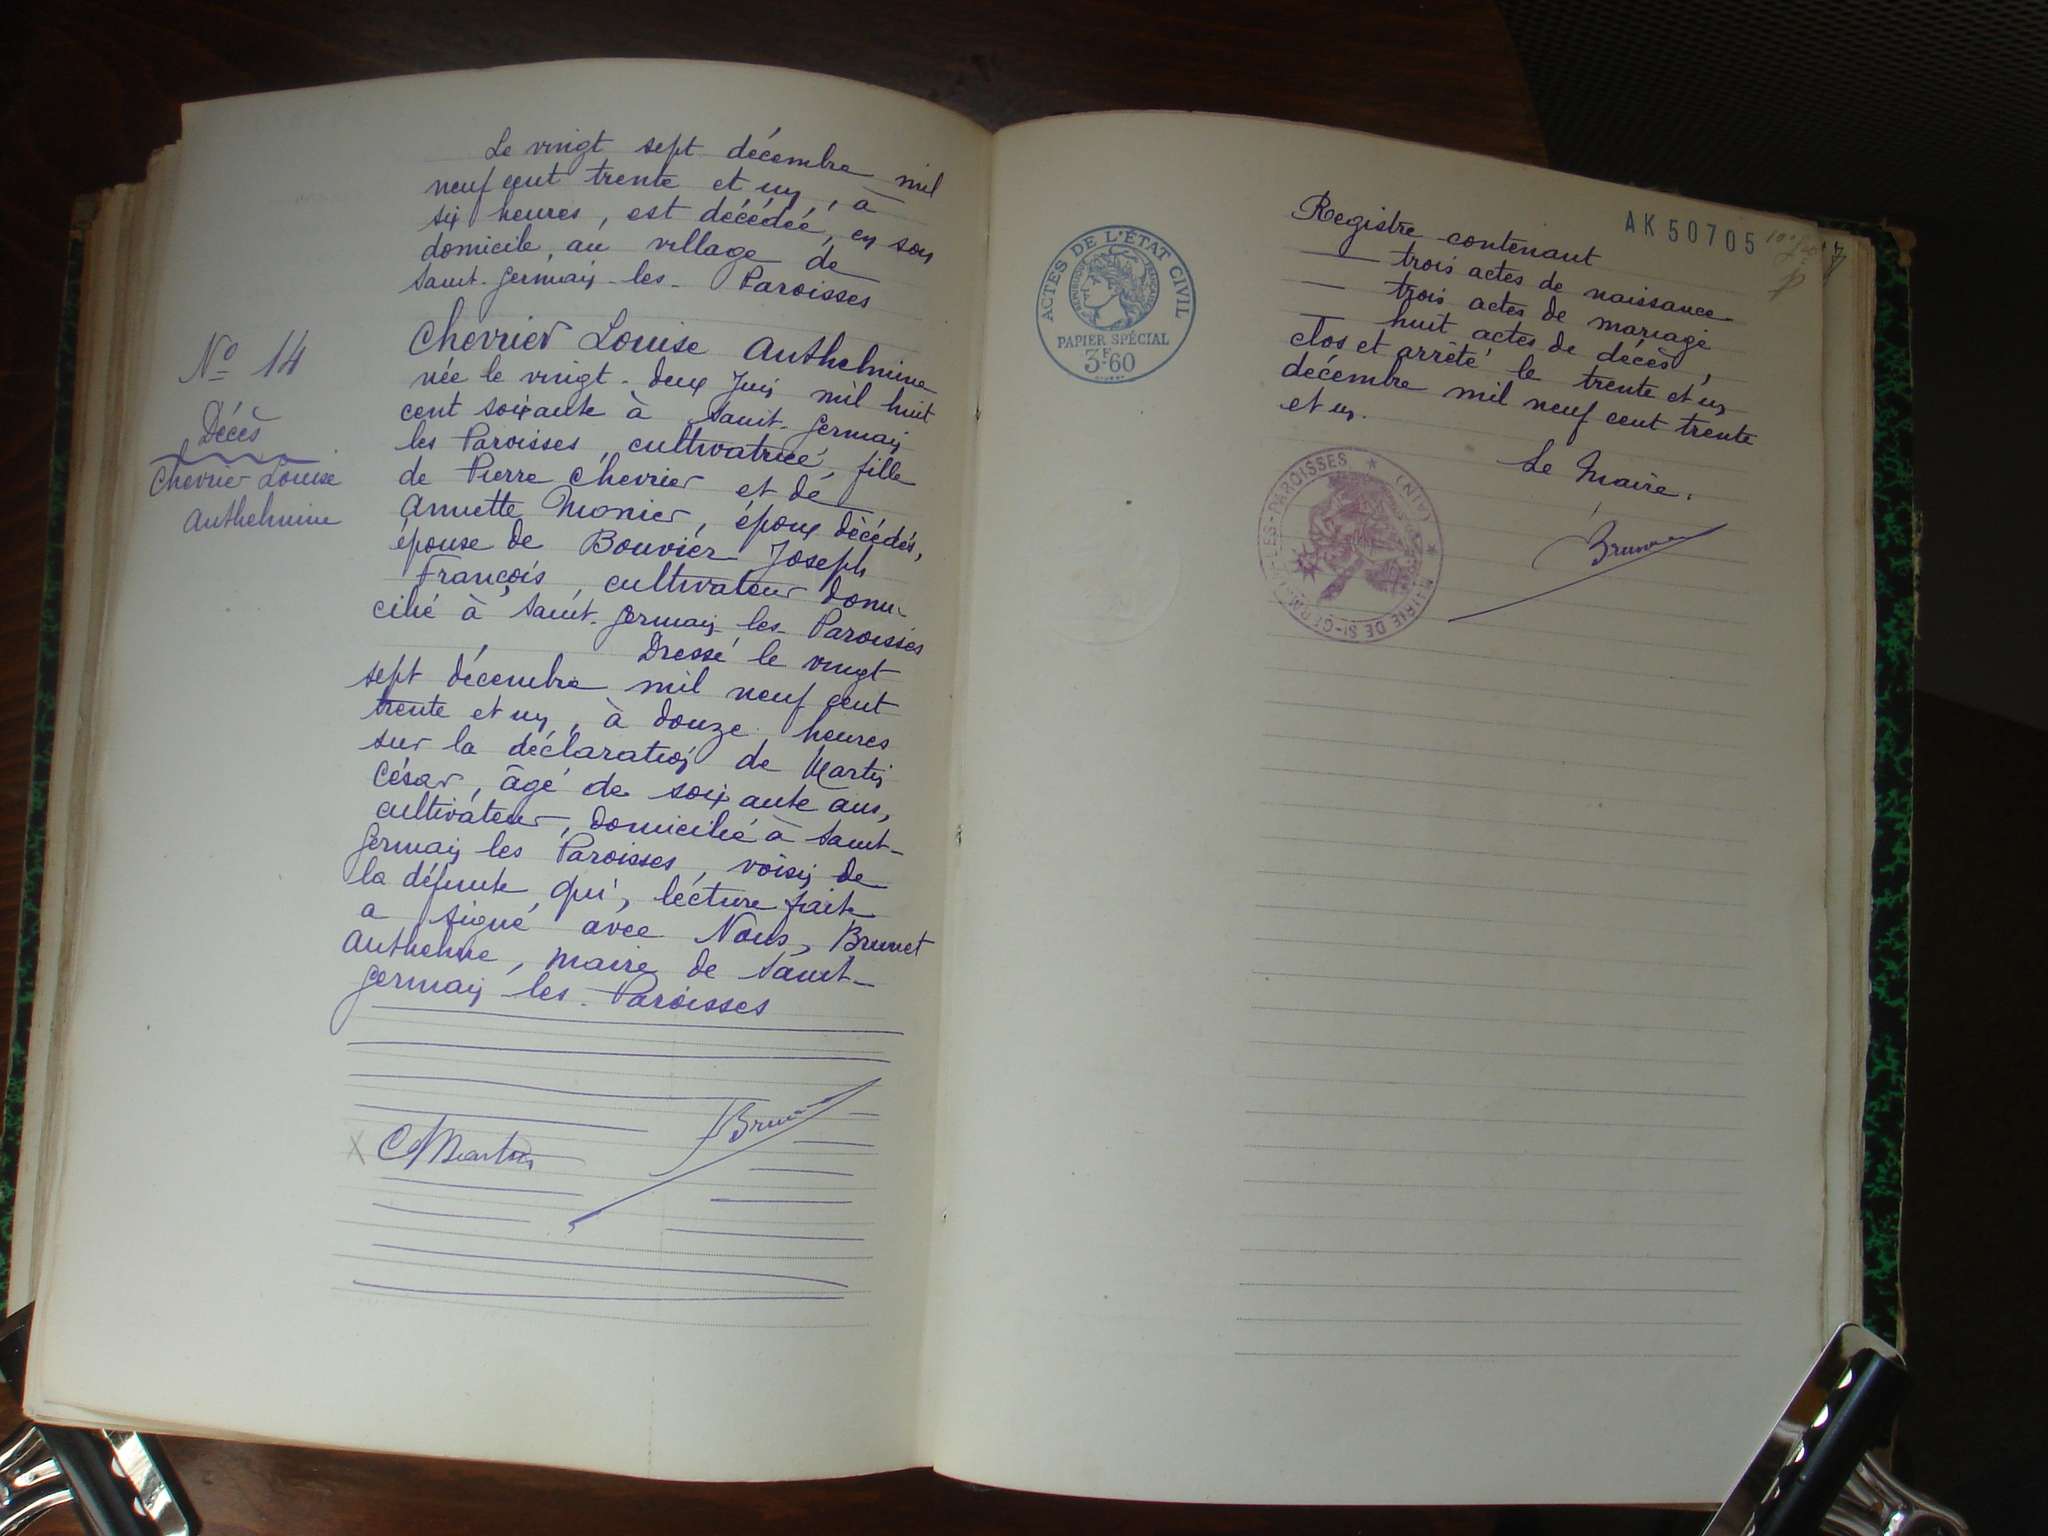 Le vingt sept décembre mil
neuf cent trente et un, à
six heures, est décédée, en son
domicile, au village de
Saint-Germain-les-Paroisses
Chevrier Louise Anthelmine
née le vingt-deux Juin mil huit
cent soixante à Saint-Germain
les Paroisses, cultivatrice, fille
de Pierre Chevrier et de
Annette Monier, époux décédés,
épouse de Bouvier Joseph
François, cultivateur domi-
cilié à Saint-Germain-les-Paroisses
Dressé le vingt
sept décembre mil neuf cent
trente et un, à douze heures
sur la déclaration de Martin
César, âgé de soixante ans,
cultivateur, domicilié à Saint-
Germain les Paroisses, voisin de
la défunte, qui, lecture faite
a signé avec Nous, Brunet
Anthelme, maire de Saint-
Germain-les-Paroisses
N° 14
Décès
Chevrier Louise
Anthelmine
C Martin
Brunet
ACTES DE L'ÉTAT CIVIL
RÉPUBLIQUE FRANÇAISE
PAPIER SPÉCIAL
3F60
AK 50705
Registre contenant
trois actes de naissance
trois actes de mariage
huit actes de décès,
clos et arrêté le trente et un
décembre mil neuf cent trente
et un.
Le Maire.
Brunet
MAIRIE DE St-GERMAIN-LES-PAROISSES * (AIN) *